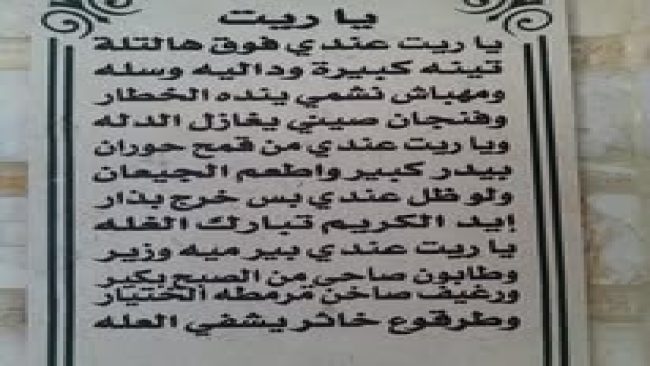 يا ريت
يا ريت عندي فوق هالتلة
تينه كبيرة وداليه وسله
ومهباش نشمي ينده الخطار
وفنجان صيني يغازل الدله
ويا ريت عندي من قمح حوران
بيدر كبير واطعم الجيعان
ولو ظل عندي بس خرج بذار
إيد الكريم تبارك الغله
يا ريت عندي بير ميه وزير
وطابون صاحي من الصبح بكير
ورغيف ساخن قرمطه الختيار
وطرقوع خاثر يشفي العله